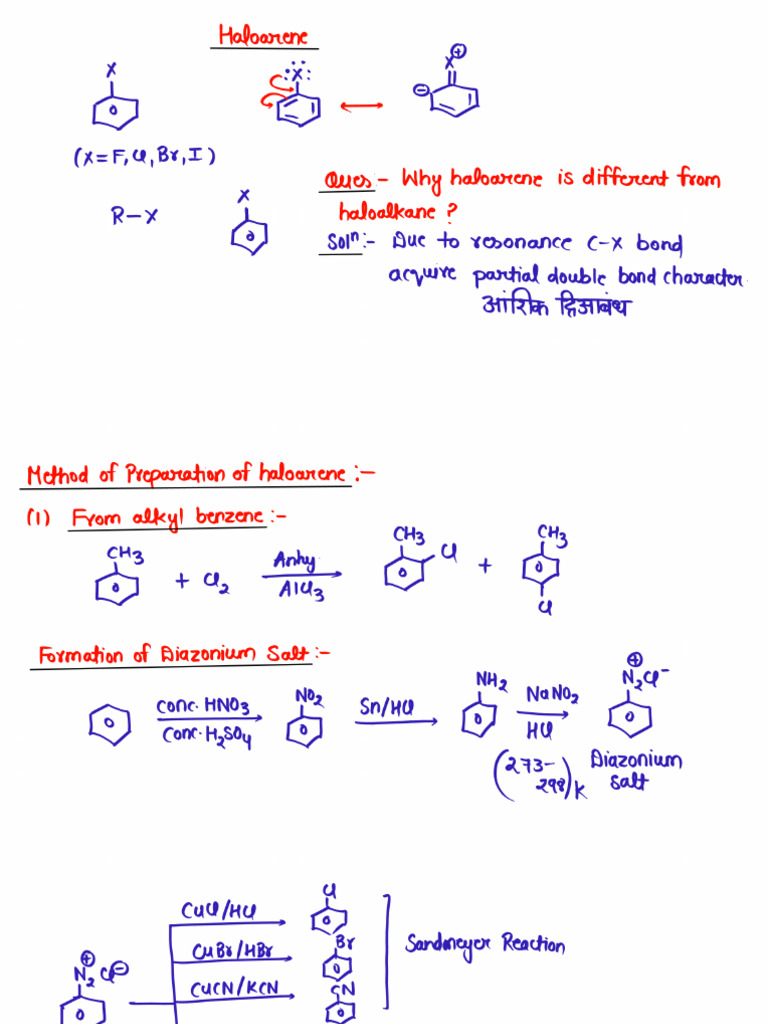 Haloarene
X
X
X
⊕
⊖
(X=F, Cl, Br, I)
Ques- Why haloarene is different from
haloalkane?
R-X
X
Solⁿ:- Due to resonance C-X bond
acquire partial double bond character
आंशिक द्विआबंध
Method of Preparation of haloarene:-
(1) From alkyl benzene:-
CH3 + Cl2 Anhy. AlCl3 CH3 Cl + CH3 Cl
Formation of Diazonium Salt:-
conc. HNO3 conc. H2SO4 NO2 Sn/HCl NH2 NaNO2 HCl N2Cl⁻ ⊕
(273-298)K Diazonium
Salt
CuCl/HCl Cl
CuBr/HBr Br
Sandmeyer Reaction
N2 ⊕ Cl ⊖
CuCN/KCN CN